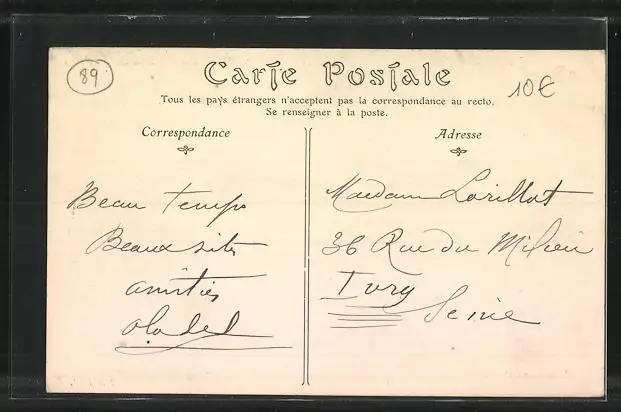 89
Carte Postale
10€
Tous les pays étrangers n'acceptent pas la correspondance au recto.
Se renseigner à la poste.
Correspondance
Beau temps
Beaux sites
amitiés
Adresse
Madame Lorillot
36 Rue du Milieu
Ivry
Seine